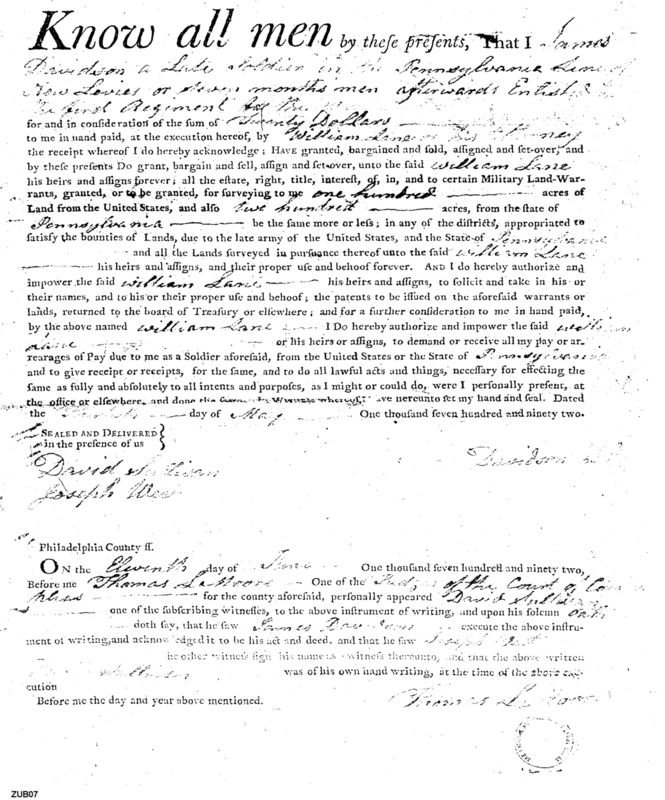 Know all men by these presents, That I James
Davidson a Late Soldier in the Pennsylvania Line of
New Levies or Seven months men afterwards
The first Regiment
for and in consideration of the sum of Twenty Dollars
to me in hand paid, at the execution hereof, by William Lane
the receipt whereof I do hereby acknowledge; HAVE granted, bargained and sold, assigned and set-over, and
by these presents Do grant, bargain and sell, assign and set-over, unto the said William Lane
his heirs and assigns forever; all the estate, right, title, interest, of, in, and to certain Military Land-War-
rants, granted, or to be granted, for surveying to me one hundred acres of
Land from the United States, and also two hundred acres, from the state of
Pennsylvania be the same more or less; in any of the districts, appropriated to
satisfy the bounties of Lands, due to the late army of the United States, and the State of Pennsylvania
and all the Lands surveyed in pursuance thereof unto the said William Lane
his heirs and assigns, and their proper use and behoof forever. AND I do hereby authorize and
impower the said William Lane his heirs and assigns, to solicit and take in his or
their names, and to his or their proper use and behoof; the patents to be issued on the aforesaid warrants or
lands, returned to the board of Treasury or elsewhere; and for a further consideration to me in hand paid,
by the above named William Lane I Do hereby authorize and impower the said William
Lane or his heirs or assigns, to demand or receive all my pay or ar-
rearages of Pay due to me as a Soldier aforesaid, from the United States or the State of Pennsylvania
and to give receipt or receipts, for the same, and to do all lawful acts and things, necessary for effecting the
same as fully and absolutely to all intents and purposes, as I might or could do, were I personally present, at
the office or elsewhere, and done hereunto set my hand and seal. Dated
the day of May One thousand seven hundred and ninety two.
SEALED AND DELIVERED
in the presence of us
David Sullivan Davidson
Joseph
Philadelphia County ss.
ON the Eleventh day of June One thousand seven hundred and ninety two,
Before me Thomas L Moore One of the Judges of the Court of Common
Pleas for the county aforesaid, personally appeared David Sullivan
one of the subscribing witnesses, to the above instrument of writing, and upon his solemn oath
doth say, that he saw James Davidson execute the above instru-
ment of writing, and acknowledged it to be his act and deed. and that he saw Joseph
the other witness sign his name as witness thereto, and that the above written
was of his own hand writing, at the time of the above exe-
cution
Before me the day and year above mentioned.
Thomas L Moore
ZUB07